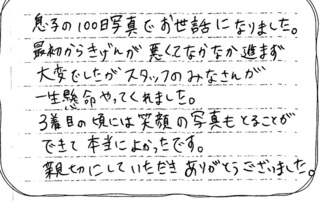 息子の100日写真でお世話になりました。
最初からきげんが悪くてなかなか進まず
大変でしたがスタッフのみなさんが
一生懸命やってくれました。
3着目の頃には笑顔の写真もとることが
できて本当によかったです。
親切にしていただきありがとうございました。